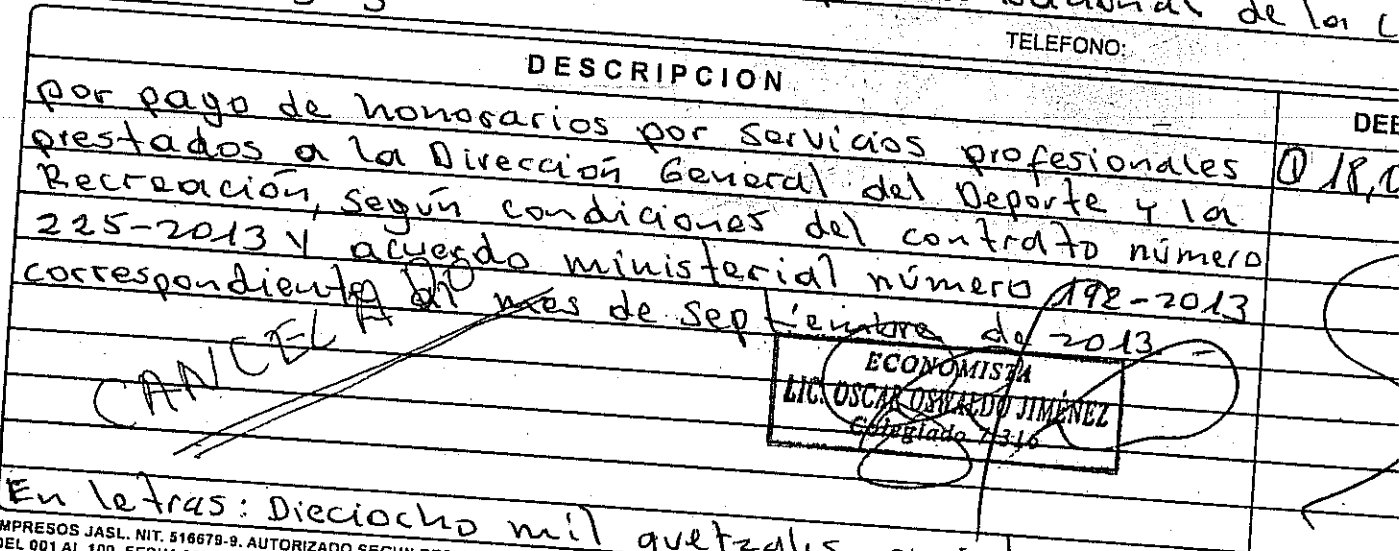 cional de la C
TELEFONO:
DESCRIPCION
DEB
por pago de honorarios por servicios profesionales
Q 18,0
prestados a la Dirección General del Deporte y la
Recreación, según condiciones del contrato número
225-2013 y acuerdo ministerial número 192-2013
correspondiente al mes de Septiembre de 2013 -
CANCELADO
ECONOMISTA
LIC. OSCAR OSWALDO JIMÉNEZ
Colegiado 7,316
En letras: Dieciocho mil quetzales
IMPRESOS JASL. NIT. 516679-9. AUTORIZADO SEGUN
DEL 001 AL 100.